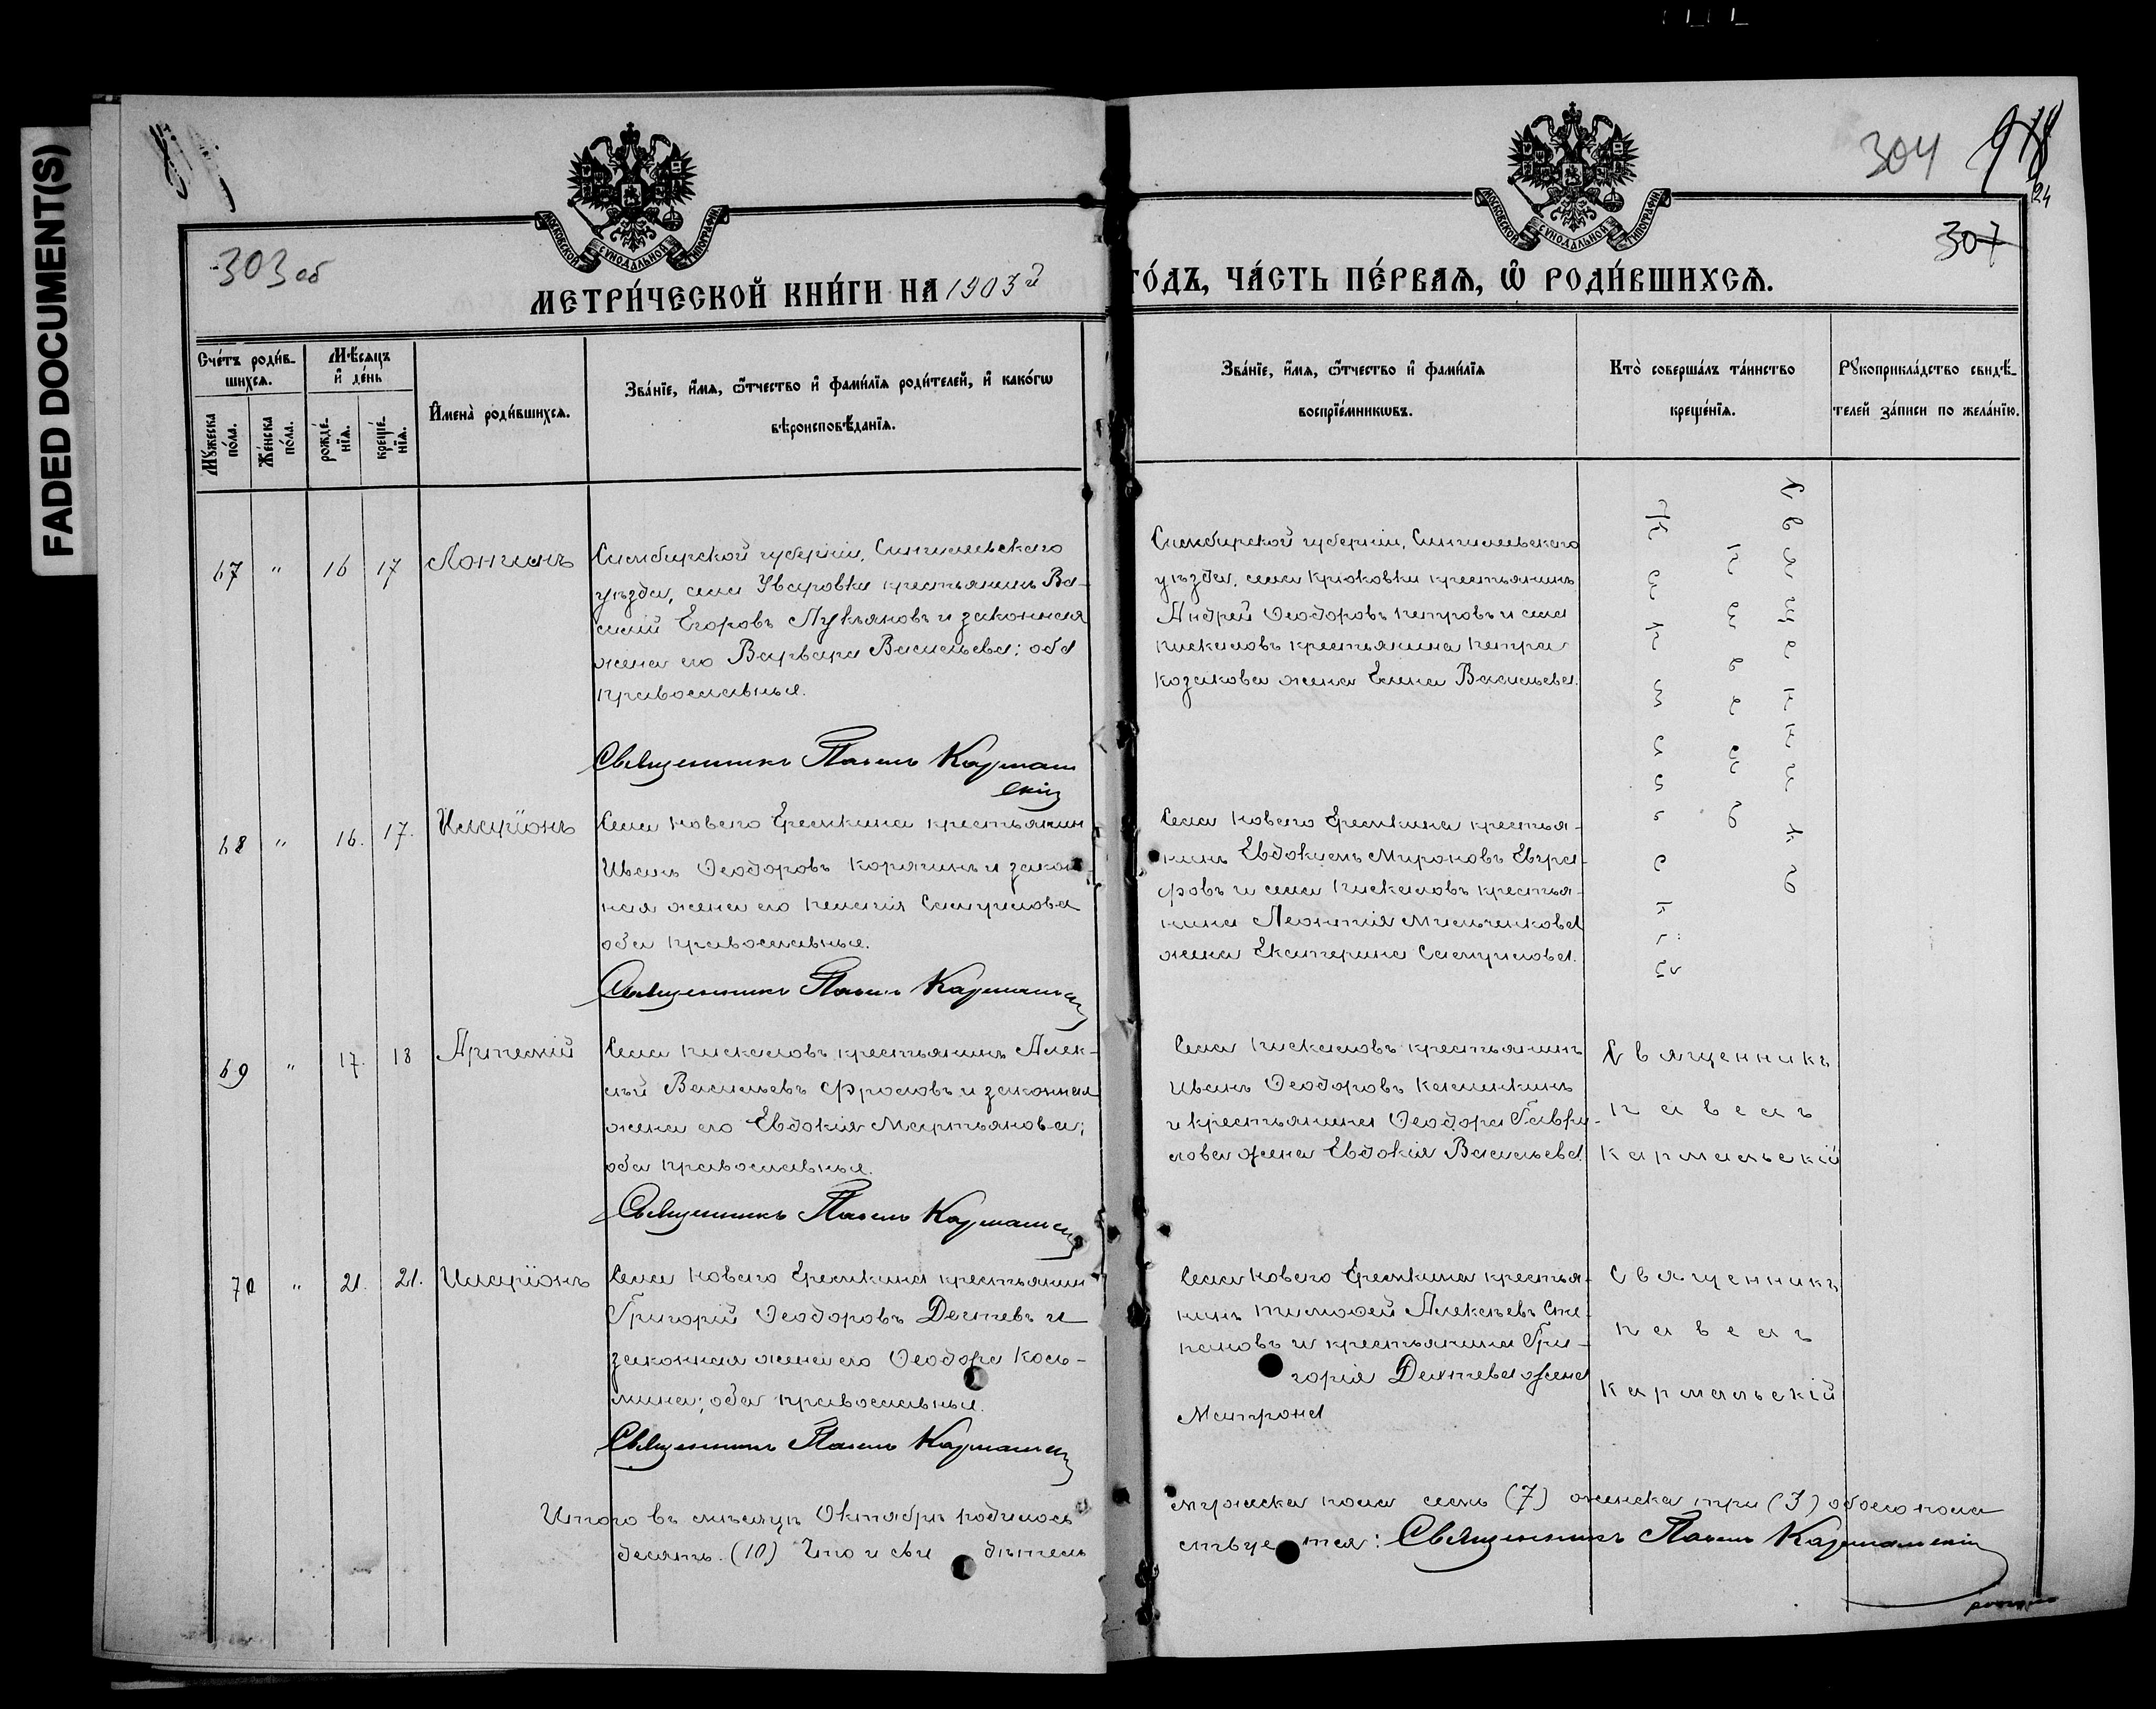 FADED DOCUMENT(S)
303 об
304
978
24
307
МОСКОВСКОЙ СѴНОДАЛЬНОЙ ТИПОГРАФІИ
МОСКОВСКОЙ СѴНОДАЛЬНОЙ ТИПОГРАФІИ
МЕТРИ́ЧЕСКОЙ КНИ́ГИ НА 1903й ГО́ДЪ, ЧА́СТЬ ПЕ́РВАѦ, Ѡ҆ РОДИ́ВШИХСѦ.
Сче́тъ роди́в-
шихсѧ.
Мꙋ́жеска
по́ла.
Же́нска
по́ла.
Мѣ́сѧцъ
и҆ де́нь
рожде́-
нїѧ.
креще́-
нїѧ.
И҆мена̀ роди́вшихсѧ.
Зва́нїе, и҆́мѧ, ѻ҆́тчество и҆ фами́лїѧ роди́телей, и҆ како́гѡ
вѣроисповѣ́данїѧ.
Зва́нїе, и҆́мѧ, ѻ҆́тчество и҆ фами́лїѧ
воспрїе́мникѡвъ.
Кто̀ соверша́лъ та́инство
креще́нїѧ.
Рꙋкоприкла́дство свидѣ́-
телей за́писи по жела́нїю.
67 " 16 17 Лонгинъ
Симбирской губерніи, Сингилевскаго
уѣзда, села Уваровки крестьянинъ Ва-
силій Егоровъ Лукьяновъ и законная
жена его Варвара Васильева; оба
православные.
Священникъ Павелъ Кармаль
скій
Симбирской губерніи, Сингилевскаго
уѣзда, села Крюковки крестьянинъ
Андрей Ѳеодоровъ Петровъ и села
Пискаловъ крестьянина Петра
Козакова жена Елена Васильева.
Священникъ
Павелъ
Кармальскій
68 " 16. 17. Иларіонъ
Села Новаго Еремкина крестьянин
Иванъ Ѳеодоровъ Корягинъ и закон
ная жена его Пелагія Самуилова
оба православные.
Священникъ Павелъ Кармальскій
Села Новаго Еремкина крестья-
нинъ Евдокимъ Мироновъ Евгра-
фовъ и села Пискаловъ крестья-
нина Леонтія Мильченкова
жена Екатерина Самуилова.
69 " 17. 18 Артемій
Села Пискаловъ крестьянинъ Алек-
сѣй Васильевъ Фроловъ и законная
жена его Евдокія Мартьянова;
оба православные.
Священникъ Павелъ Кармальскій
Села Пискаловъ крестьянинъ
Иванъ Ѳеодоровъ Калинкинъ
и крестьянина Ѳеодора Гаври-
лова жена Евдокія Васильева.
Священникъ
Павелъ
Кармальскій
70 " 21. 21. Иларіонъ
Села Новаго Еремкина крестьянин
Григорій Ѳеодоровъ Дегтевъ и
законная жена его Ѳеодора Кось-
мина; оба православные.
Священникъ Павелъ Кармальскій
Села Новаго Еремкина крестья-
нинъ Тимоѳей Алексѣевъ Сте-
пановъ и крестьянина Гри-
горія Дегтева жена
Матрона
Священникъ
Павелъ
Кармальскій
Итого въ мѣсяцѣ Октябрѣ родилось мужеска пола семь (7) женска три (3) обоего пола
десять. (10) Что и сви дѣтель ствуе тся: Священникъ Павелъ Кармальскій